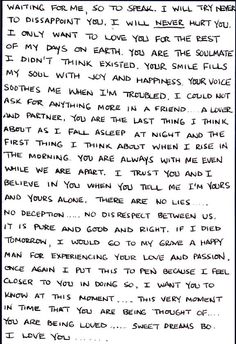 WAITING FOR ME, SO TO SPEAK. I WILL TRY NEVER
TO DISSAPPOINT YOU. I WILL NEVER HURT YOU.
I ONLY WANT TO LOVE YOU FOR THE REST
OF MY DAYS ON EARTH. YOU ARE THE SOULMATE
I DIDN'T THINK EXISTED. YOUR SMILE FILLS
MY SOUL WITH JOY AND HAPPINESS, YOUR VOICE
SOOTHES ME WHEN I'M TROUBLED, I COULD NOT
ASK FOR ANYTHING MORE IN A FRIEND... A LOVER
AND PARTNER, YOU ARE THE LAST THING I THINK
ABOUT AS I FALL ASLEEP AT NIGHT AND THE
FIRST THING I THINK ABOUT WHEN I RISE IN
THE MORNING. YOU ARE ALWAYS WITH ME EVEN
WHILE WE ARE APART. I TRUST YOU AND I
BELIEVE IN YOU WHEN YOU TELL ME I'M YOURS
AND YOURS ALONE, THERE ARE NO LIES.....
NO DECEPTION..... NO DISRESPECT BETWEEN US.
IT IS PURE AND GOOD AND RIGHT. IF I DIED
TOMORROW, I WOULD GO TO MY GRAVE A HAPPY
MAN FOR EXPERIENCING YOUR LOVE AND PASSION.
ONCE AGAIN I PUT THIS TO PEN BECAUSE I FEEL
CLOSER TO YOU IN DOING SO, I WANT YOU TO
KNOW AT THIS MOMENT.... THIS VERY MOMENT
IN TIME THAT YOU ARE BEING THOUGHT OF....
YOU ARE BEING LOVED..... SWEET DREAMS BO.
I LOVE YOU.......